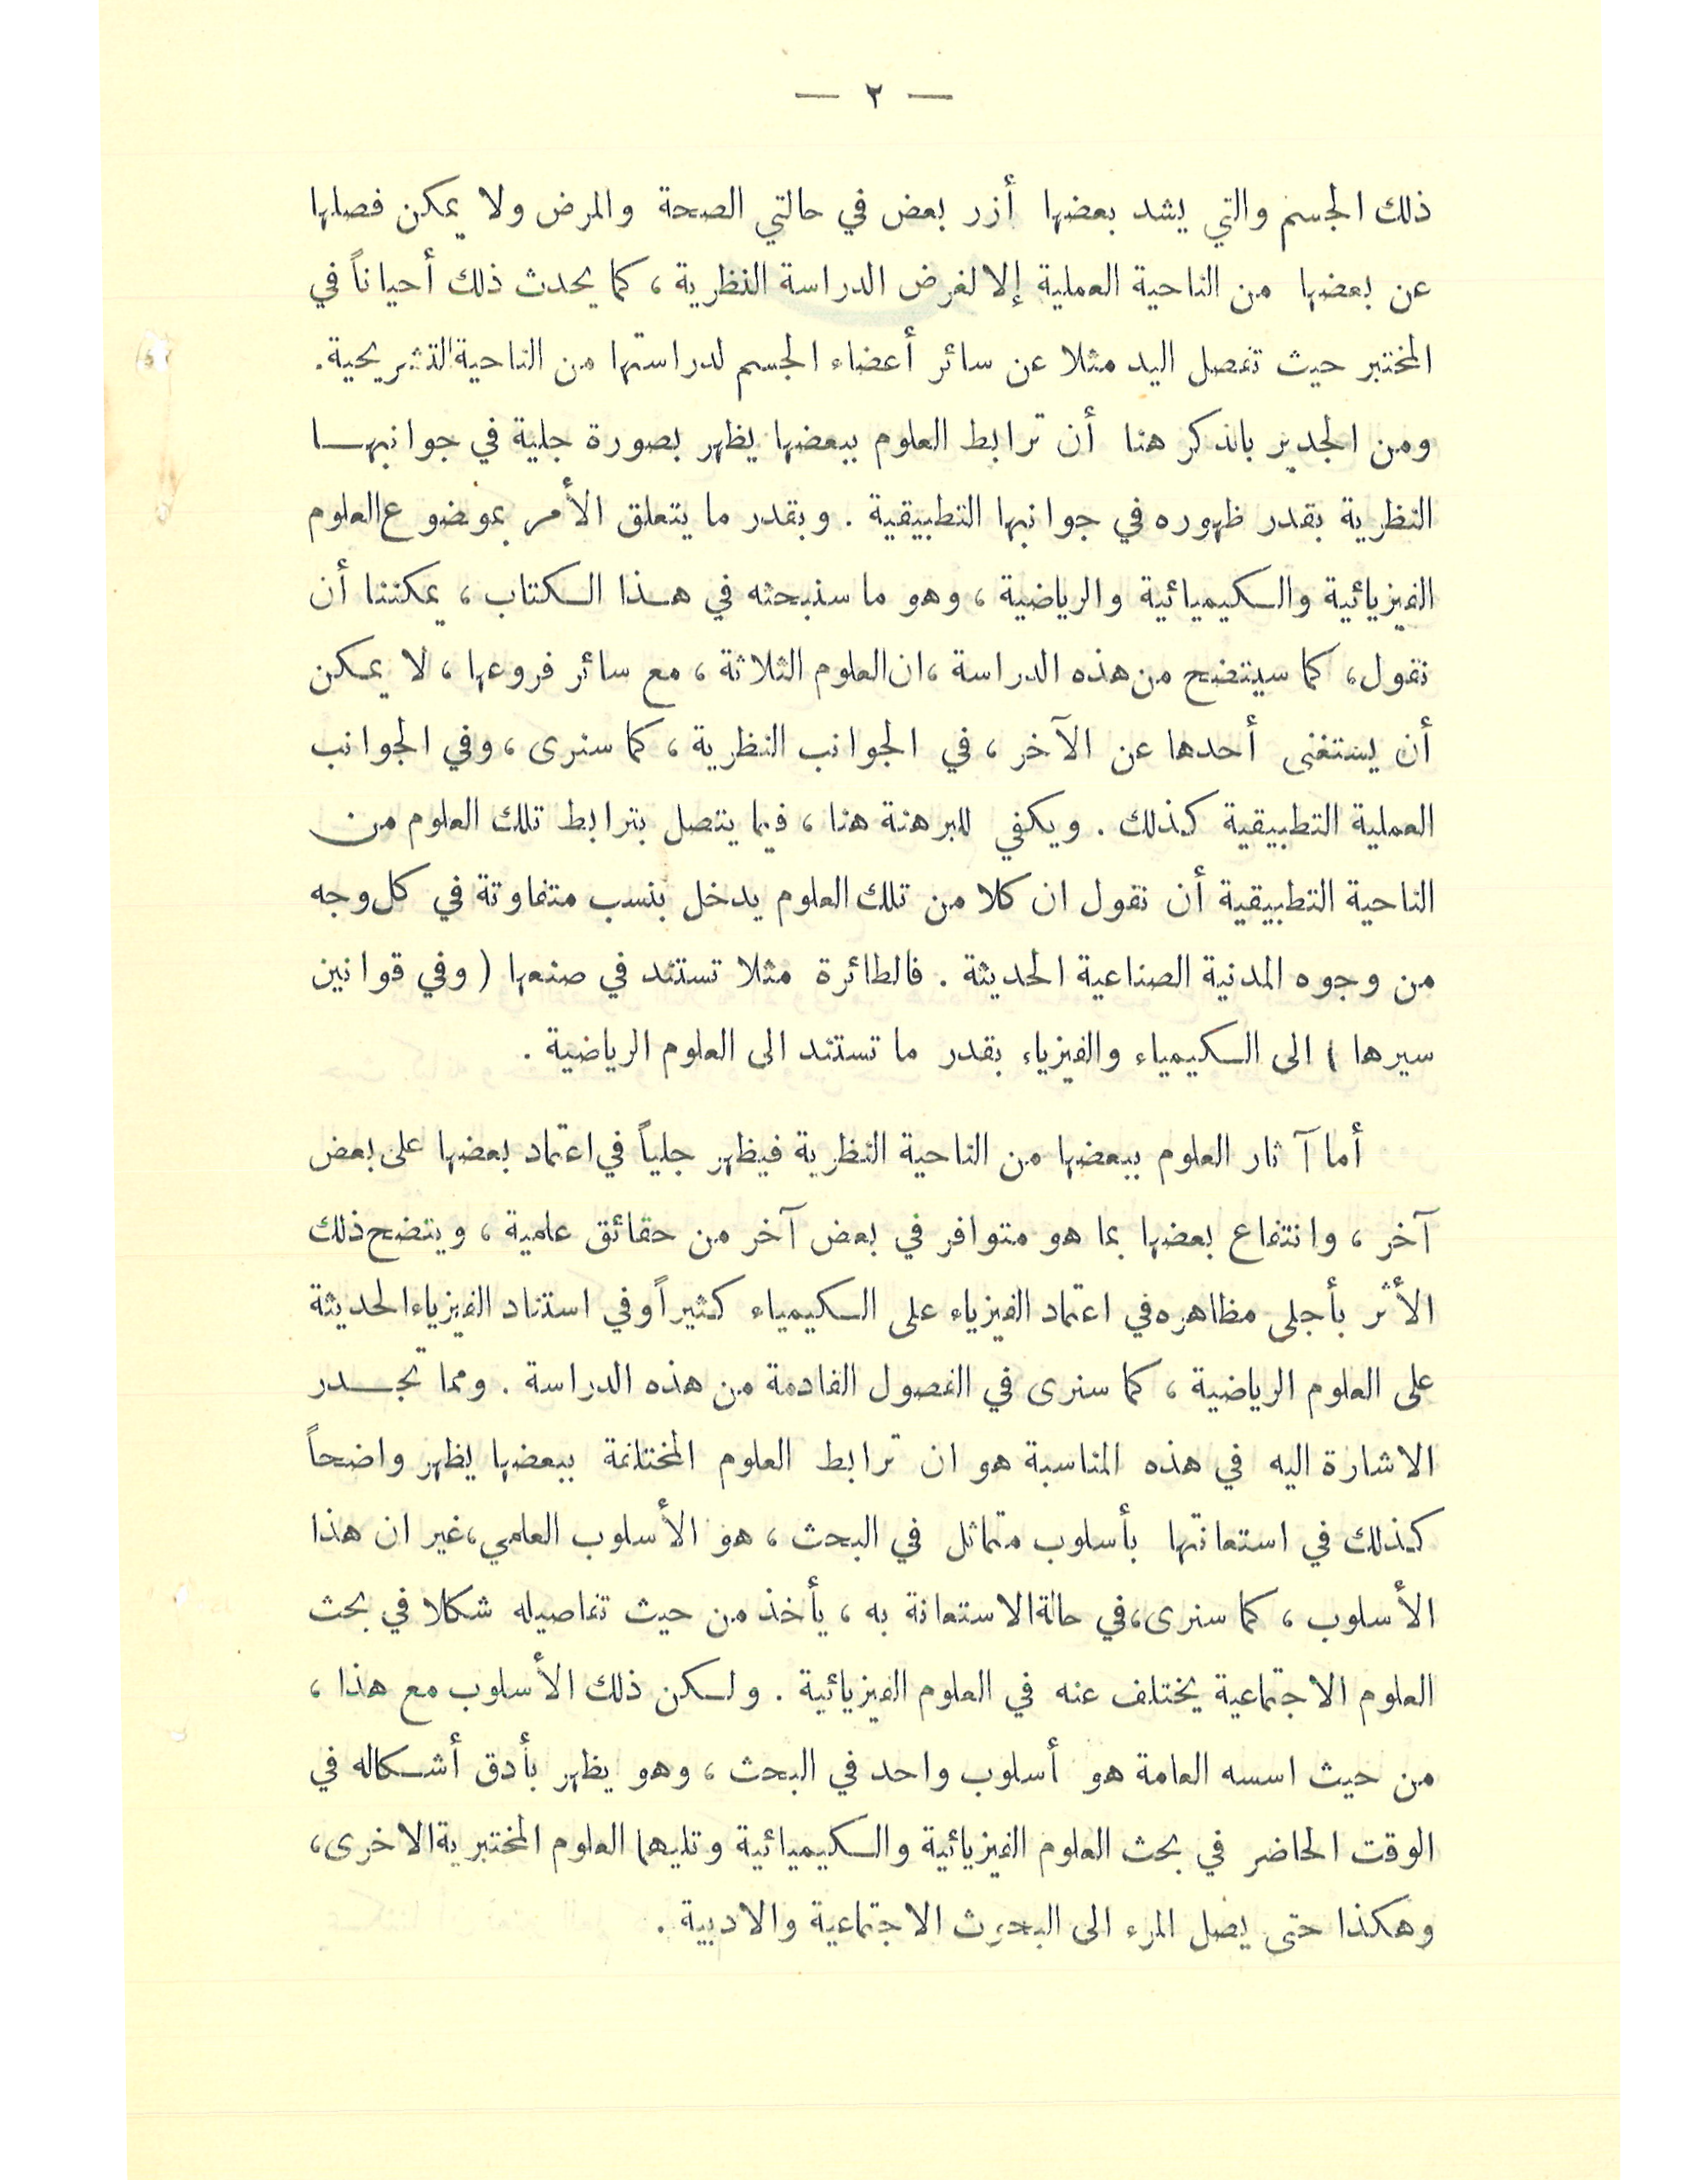 — ٢ —
ذلك الجسم والتي يشد بعضها أزر بعض في حالتي الصحة والمرض ولا يمكن فصلها
عن بعضها من الناحية العملية إلا لغرض الدراسة النظرية ، كما يحدث ذلك أحياناً في
المختبر حيث تفصل اليد مثلا عن سائر أعضاء الجسم لدراستها من الناحية التشريحية .
ومن الجدير بالذكر هنا أن ترابط العلوم ببعضها يظهر بصورة جلية في جوانبهـــا
النظرية بقدر ظهوره في جوانبها التطبيقية . وبقدر ما يتعلق الأمر بموضوع العلوم
الفيزيائية والكيميائية والرياضية ، وهو ما سنبحثه في هـذا الكتاب ، يمكننا أن
نقول ، كما سيتضح من هذه الدراسة ، ان العلوم الثلاثة ، مع سائر فروعها ، لا يمكن
أن يستغنى أحدها عن الآخر ، في الجوانب النظرية ، كما سنرى ، وفي الجوانب
العملية التطبيقية كذلك . ويكفي للبرهنة هنا ، فيما يتصل بترابط تلك العلوم من
الناحية التطبيقية أن نقول ان كلا من تلك العلوم يدخل بنسب متفاوتة في كل وجه
من وجوه المدنية الصناعية الحديثة . فالطائرة مثلا تستند في صنعها ( وفي قوانين
سيرها ) الى الكيمياء والفيزياء بقدر ما تستند الى العلوم الرياضية .
أما آثار العلوم ببعضها من الناحية النظرية فيظهر جلياً في اعتماد بعضها على بعض
آخر ، وانتفاع بعضها بما هو متوافر في بعض آخر من حقائق علمية ، ويتضح ذلك
الأثر بأجلى مظاهره في اعتماد الفيزياء على الكيمياء كثيراً وفي استناد الفيزياء الحديثة
على العلوم الرياضية ، كما سنرى في الفصول القادمة من هذه الدراسة . ومما تجـــدر
الاشارة اليه في هذه المناسبة هو ان ترابط العلوم المختلفة ببعضها يظهر واضحاً
كذلك في استعانتها بأسلوب متماثل في البحث ، هو الأسلوب العلمي ، غير ان هذا
الأسلوب ، كما سنرى ، في حالة الاستعانة به ، يأخذ من حيث تفاصيله شكلا في بحث
العلوم الاجتماعية يختلف عنه في العلوم الفيزيائية . ولكن ذلك الأسلوب مع هذا ،
من حيث اسسه العامة هو أسلوب واحد في البحث ، وهو يظهر بأدق أشكاله في
الوقت الحاضر في بحث العلوم الفيزيائية والكيميائية وتليهما العلوم المختبرية الاخرى ،
وهكذا حتى يصل المرء الى البحوث الاجتماعية والادبية .